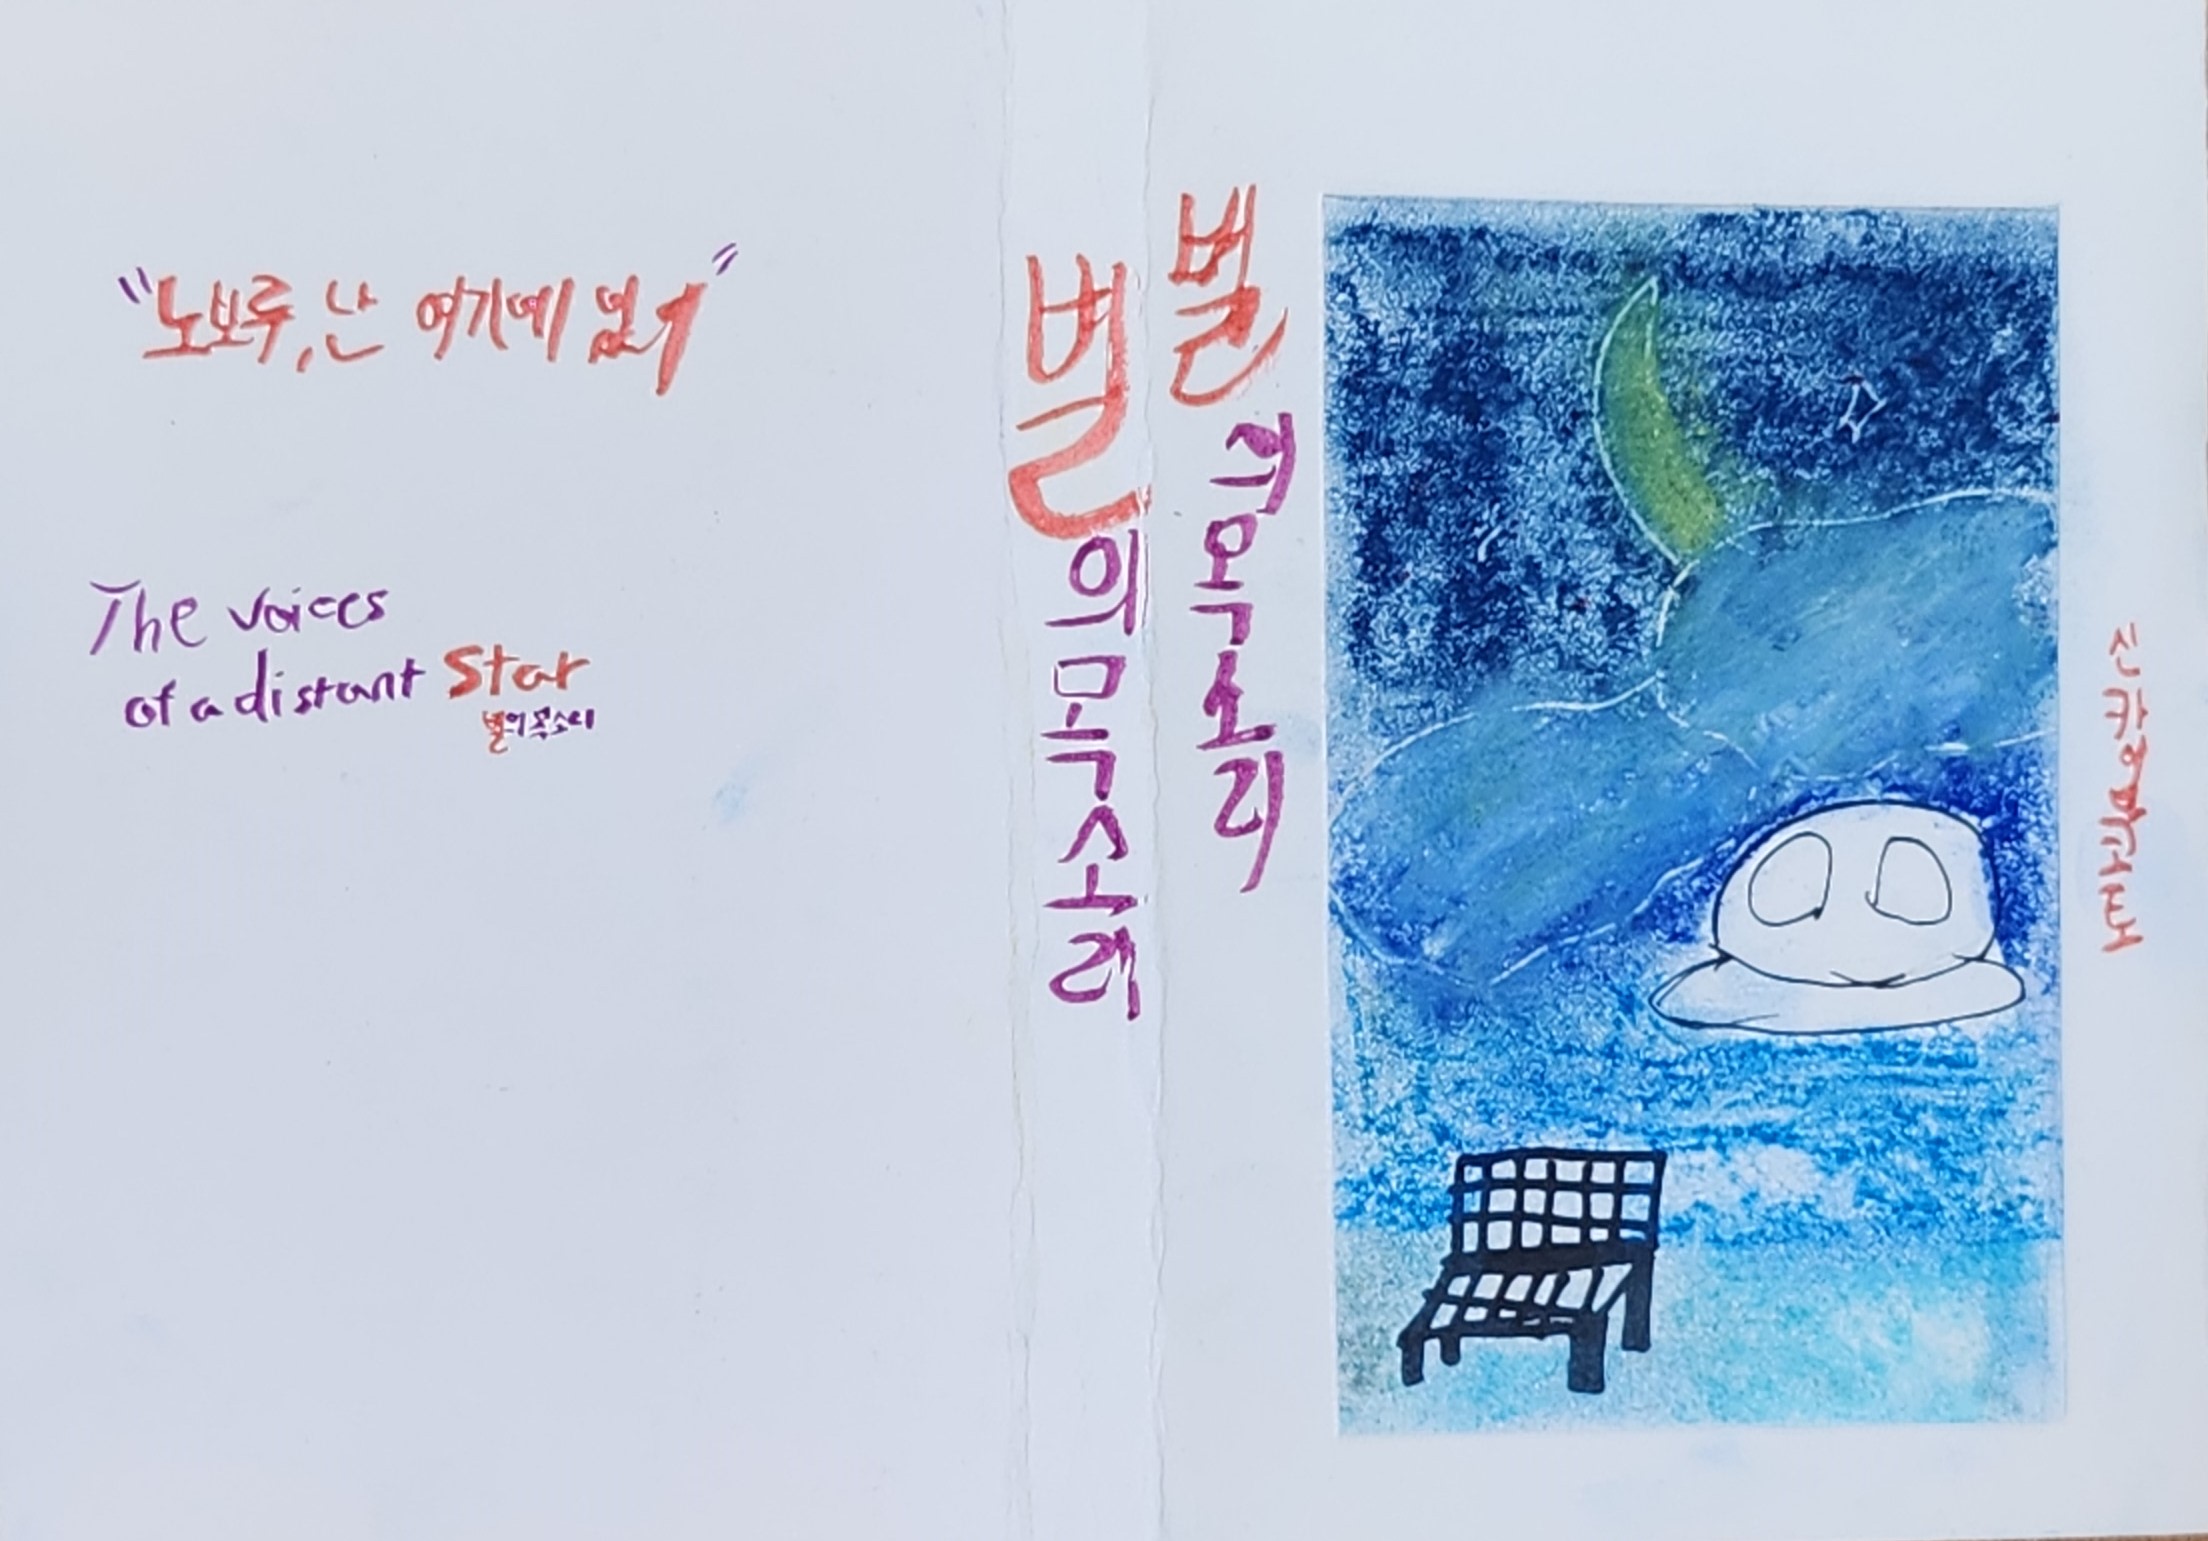 "노보루, 난 여기에 있어"
The voices
of a distant Star
별의 목소리
별의목소리
별의목소리
신카이마코토